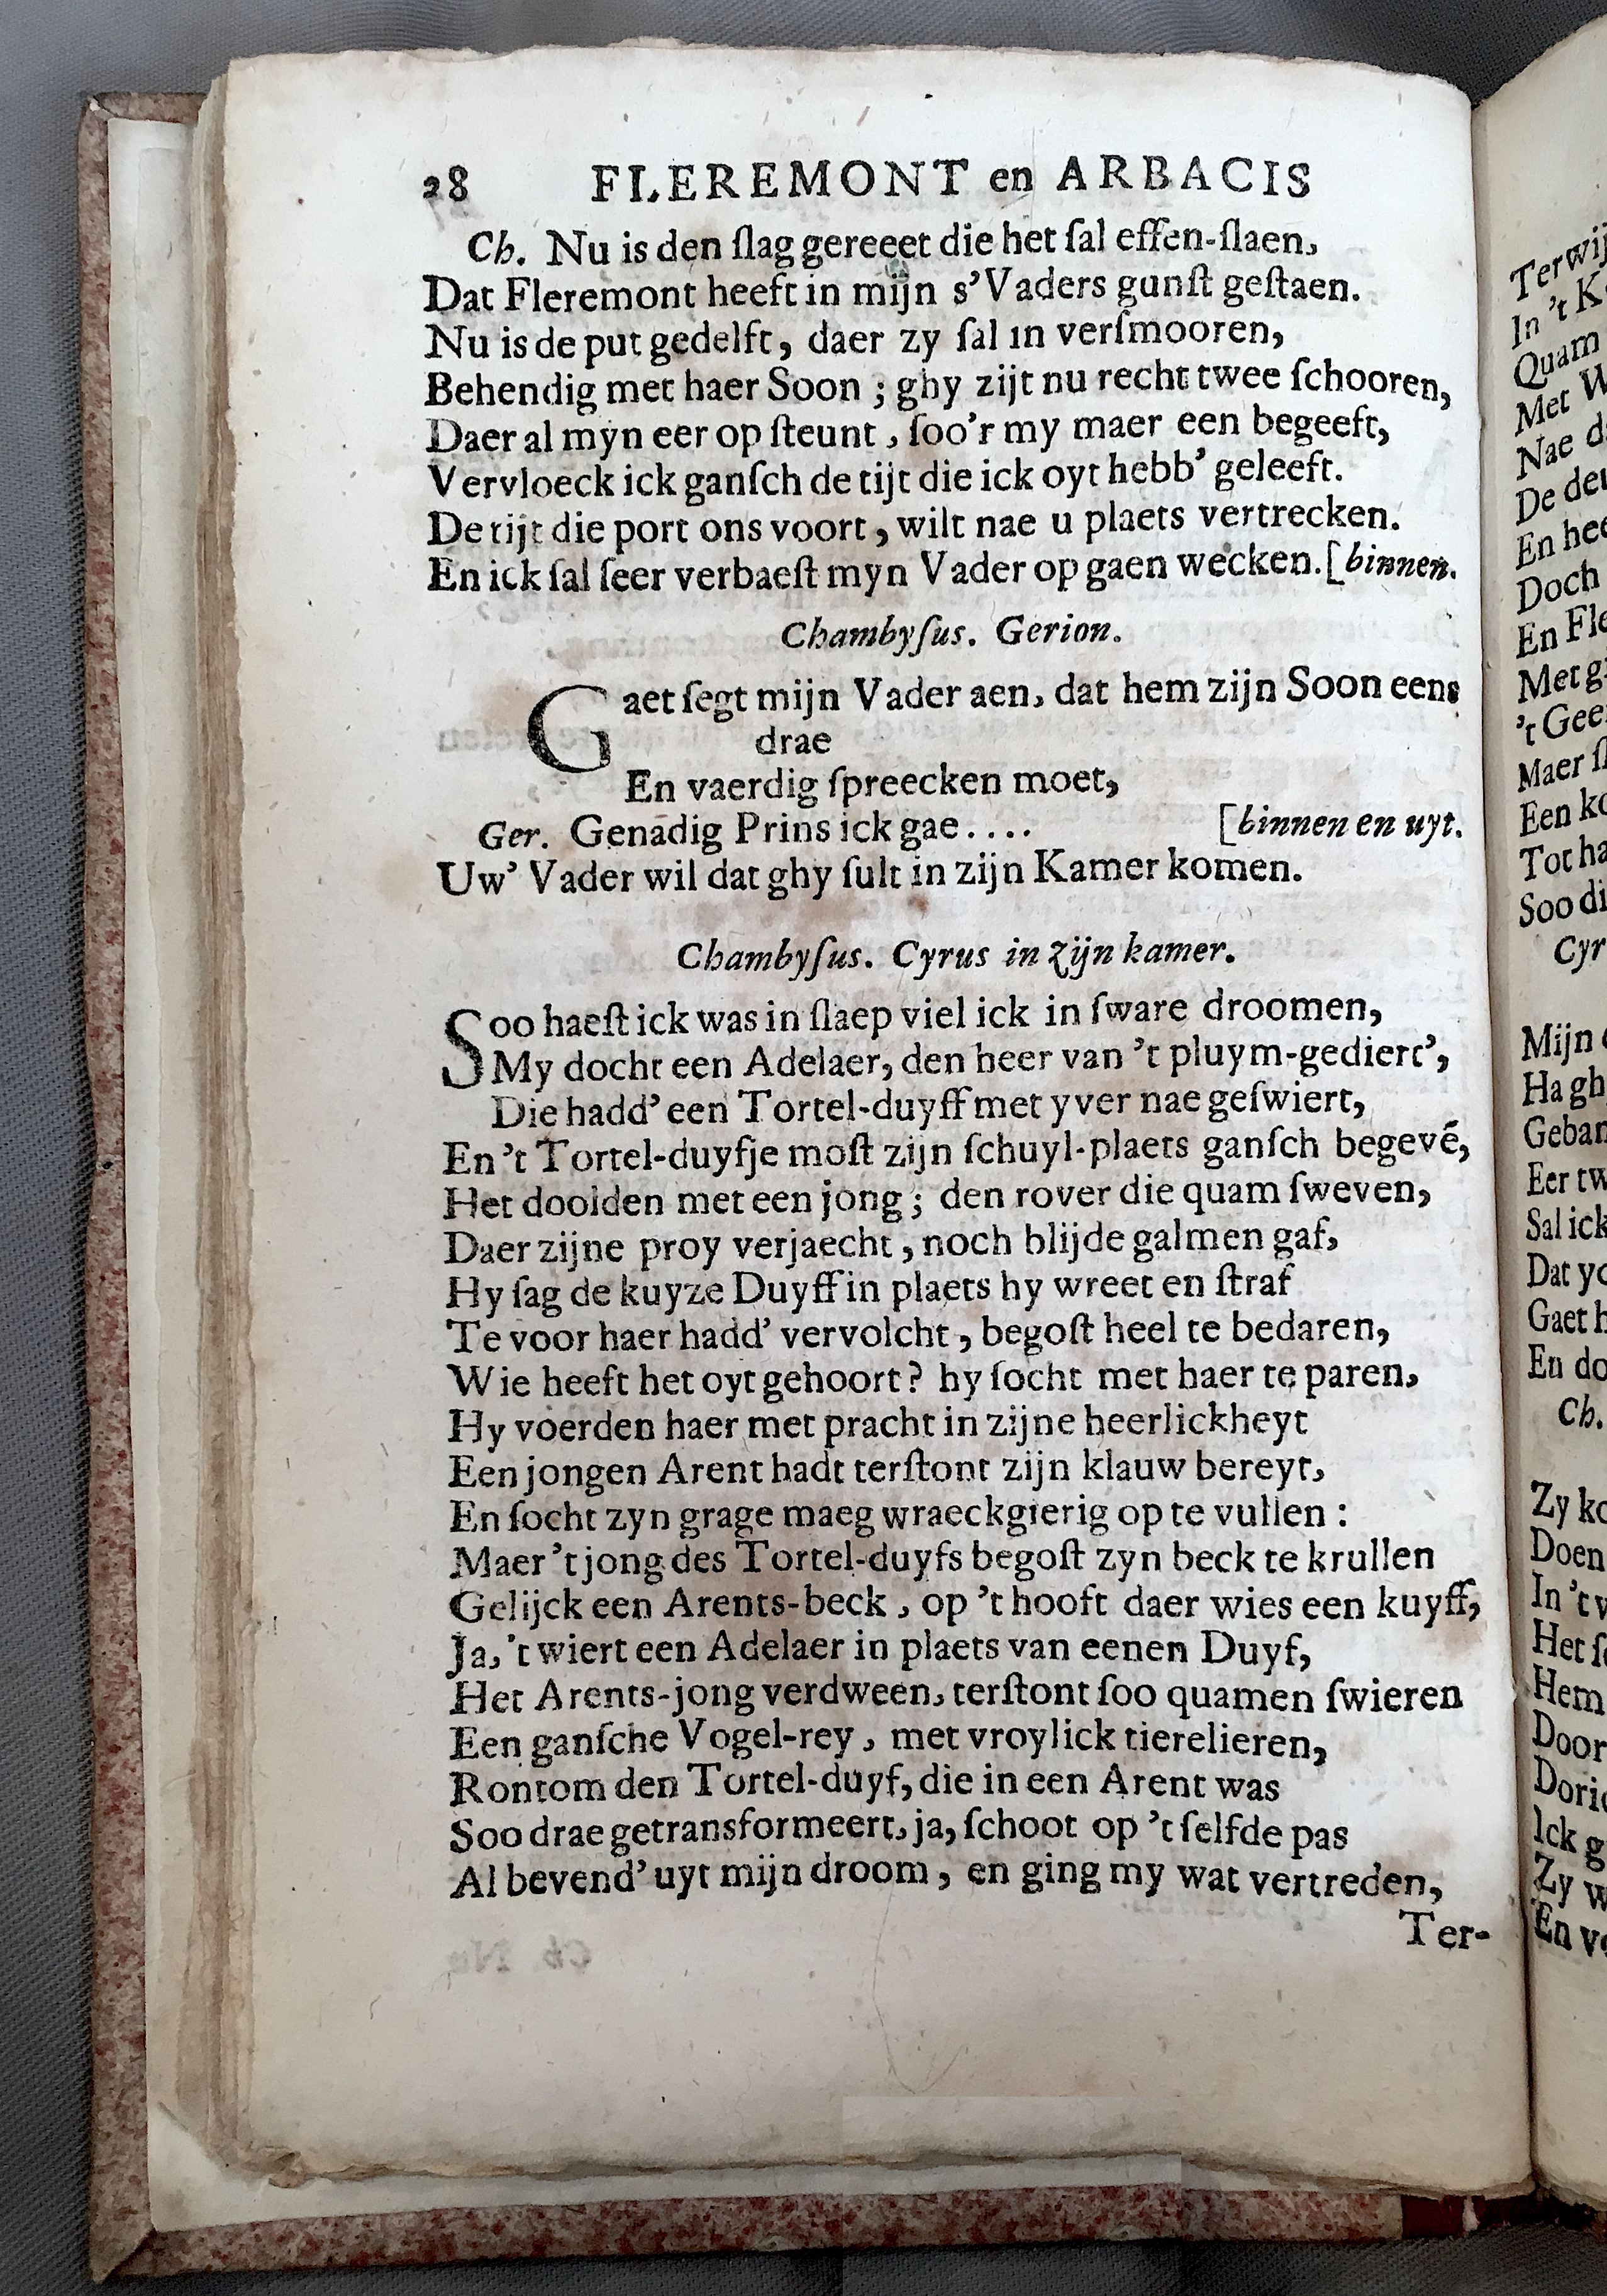 28 FLEREMONT en ARBACIS
Ch. Nu is den ſlag gereeet die het ſal effen-ſlaen,
Dat Fleremont heeft in mijn s'Vaders gunſt geſtaen.
Nu is de put gedelft, daer zy ſal in verſmooren,
Behendig met haer Soon ; ghy zijt nu recht twee ſchooren,
Daer al myn eer op ſteunt, ſoo'r my maer een begeeft,
Vervloeck ick ganſch de tijt die ick oyt hebb' geleeft.
De tijt die port ons voort, wilt nae u plaets vertrecken.
En ick ſal ſeer verbaeſt myn Vader op gaen wecken. [binnen.
Chambyſus. Gerion.
Gaet ſegt mijn Vader aen, dat hem zijn Soon eens
drae
En vaerdig ſpreecken moet,
Ger. Genadig Prins ick gae.... [binnen en uyt.
Uw' Vader wil dat ghy ſult in zijn Kamer komen.
Chambyſus. Cyrus in zijn kamer.
Soo haeſt ick was in ſlaep viel ick in ſware droomen,
My docht een Adelaer, den heer van 't pluym-gediert',
Die hadd' een Tortel-duyff met yver nae geſwiert,
En 't Tortel-duyfje moſt zijn ſchuyl-plaets ganſch begevē,
Het doolden met een jong ; den rover die quam ſweven,
Daer zijne proy verjaecht, noch blijde galmen gaf,
Hy ſag de kuyze Duyff in plaets hy wreet en ſtraf
Te voor haer hadd' vervolcht, begoſt heel te bedaren,
Wie heeft het oyt gehoort? hy ſocht met haer te paren,
Hy voerden haer met pracht in zijne heerlickheyt
Een jongen Arent hadt terſtont zijn klauw bereyt,
En ſocht zyn grage maeg wraeckgierig op te vullen :
Maer 't jong des Tortel-duyfs begoſt zyn beck te krullen
Gelijck een Arents-beck, op 't hooft daer wies een kuyff,
Ja, 't wiert een Adelaer in plaets van eenen Duyf,
Het Arents-jong verdween, terſtont ſoo quamen ſwieren
Een ganſche Vogel-rey, met vroylick tierelieren,
Rontom den Tortel-duyf, die in een Arent was
Soo drae getransformeert, ja, ſchoot op 't ſelfde pas
Al bevend' uyt mijn droom, en ging my wat vertreden,
Ter-
Terwij
In 't K
Quam
Met W
Nae d
De deu
En hee
Doch
En Fle
Met g
't Gee
Maer ſl
Een ko
Tot ha
Soo di
Cyr
Mijn
Ha gh
Geban
Eer tw
Sal ick
Dat yo
Gaet h
En do
Ch.
Zy ko
Doen
In 't v
Het ſ
Hem
Door
Doric
Ick g
Zy w
En v